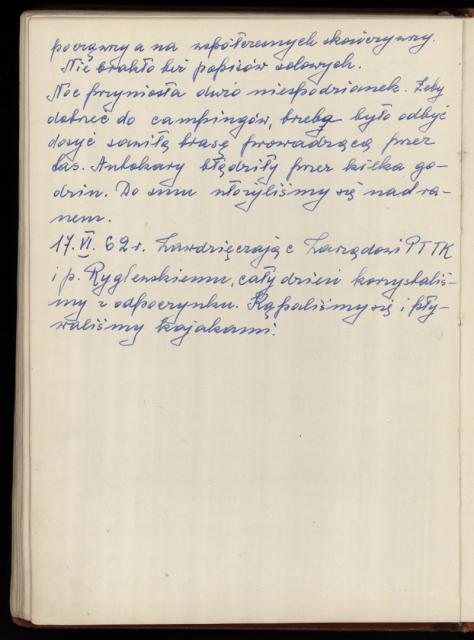 począwszy a na współczesnych skończywszy.
Nie brakło też popisów solowych.
Noc przyniosła dużo niespodzianek. Żeby
dobrnąć do campingów, trzeba było odbyć
dosyć zawiłą trasę prowadzącą przez
las. Autokary błądziły przez kilka go-
dzin. Do snu ułożyliśmy się nad ra-
nem.
17.VI.62r. Zawdzięczając Zarządowi PTTK
i p. Ryglewskiemu, cały dzień korzystaliś-
my z odpoczynku. Kąpaliśmy się i pły-
waliśmy kajakami.